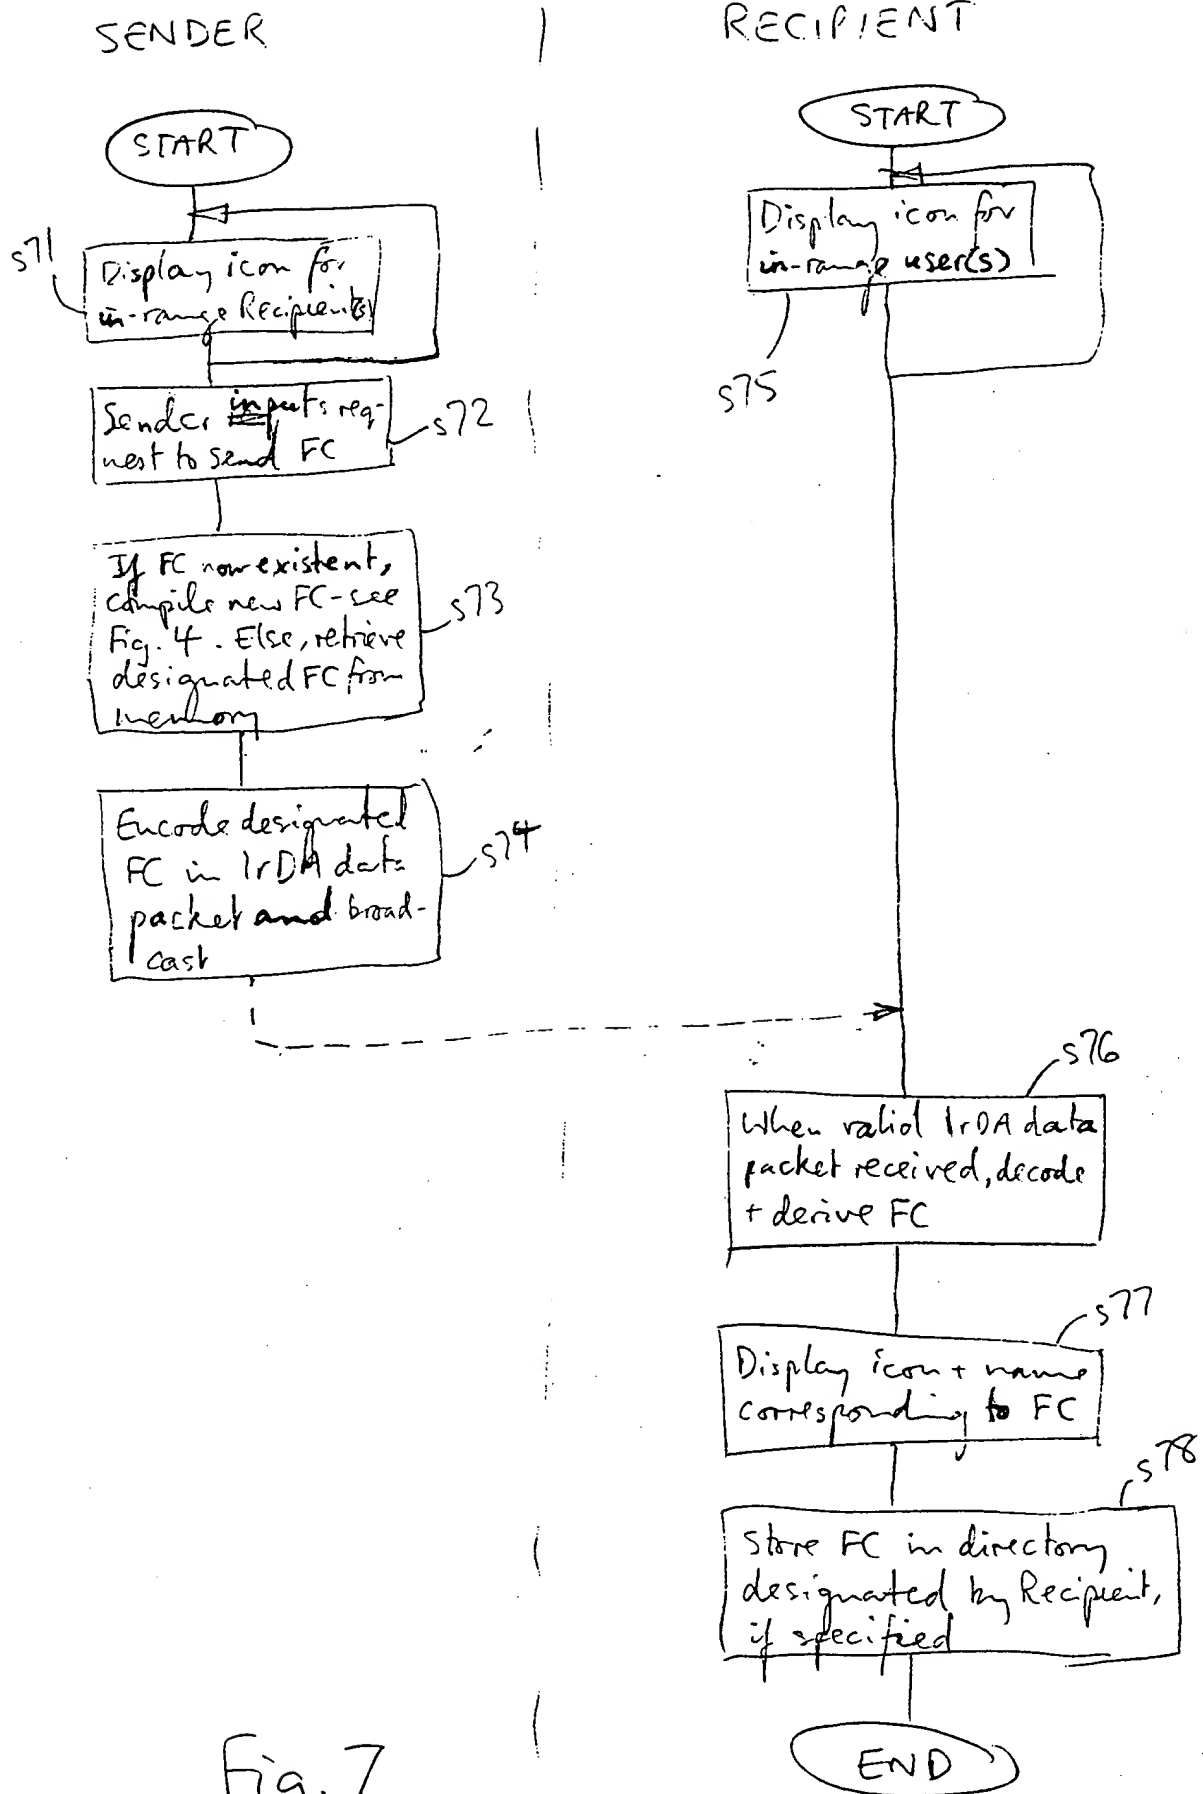 SENDER
RECIPIENT
START
s71
Display icon for
in-range Recipient(s)
Sender inputs req-
uest to send FC
s72
If FC nonexistent,
compile new FC-see
Fig. 4. Else, retrieve
designated FC from
memory
s73
Encode designated
FC in IrDA data
packet and broad-
cast
s74
START
Display icon for
in-range user(s)
s75
s76
When valid IrDA data
packet received, decode
+ derive FC
s77
Display icon + name
corresponding to FC
s78
Store FC in directory
designated by Recipient,
if specified
END
Fig. 7